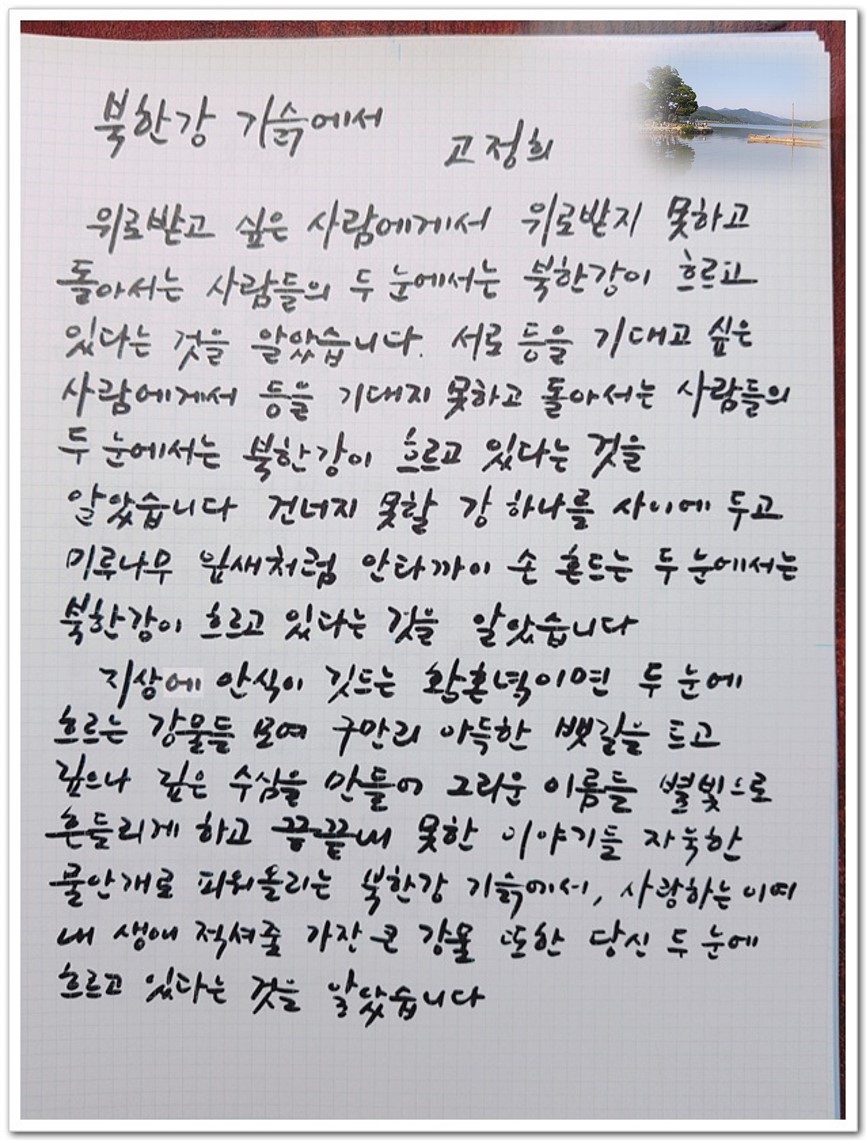 북한강 기슭에서
고정희
위로받고 싶은 사람에게서 위로받지 못하고
돌아서는 사람들의 두 눈에서는 북한강이 흐르고
있다는 것을 알았습니다. 서로 등을 기대고 싶은
사람에게서 등을 기대지 못하고 돌아서는 사람들의
두 눈에서는 북한강이 흐르고 있다는 것을
알았습니다 건너지 못할 강 하나를 사이에 두고
미루나무 잎새처럼 안타까이 손 흔드는 두 눈에서는
북한강이 흐르고 있다는 것을 알았습니다
지상에 안식이 깃드는 황혼녘이면 두 눈에
흐르는 강물들 모여 구만리 아득한 뱃길을 트고
깊으나 깊은 수심을 만들어 그리운 이름들 별빛으로
흔들리게 하고 끝끝내 못한 이야기들 자욱한
물안개로 피워올리는 북한강 기슭에서, 사랑하는 이여
내 생애 적셔줄 가장 큰 강물 또한 당신 두 눈에
흐르고 있다는 것을 알았습니다